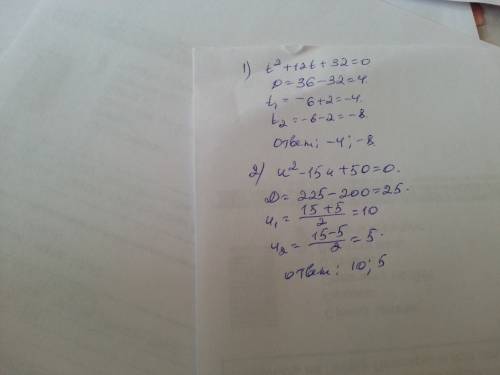 1) t²+12t+32=0
D=36-32=4.
t₁=-6+2=-4.
t₂=-6-2=-8.
Ответ: -4; -8
2) u²-15u+50=0.
D=225-200=25.
u₁=(15+5)/2=10
u₂=(15-5)/2=5.
Ответ: 10; 5